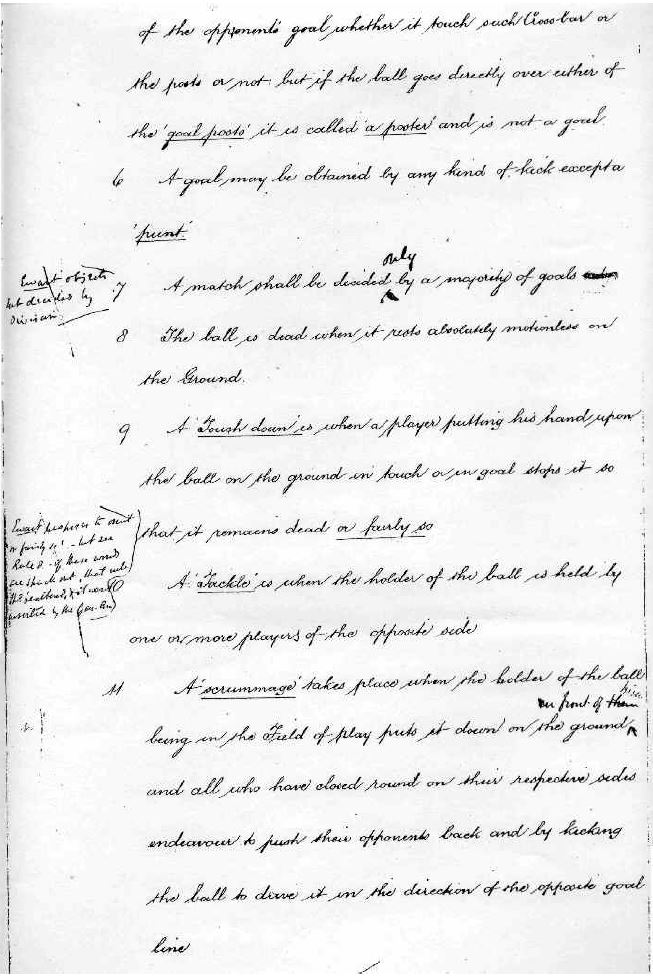 of the opponents' goal whether it touch such Cross-bar or
the posts or not but if the ball goes directly over either of
the 'goal posts' it is called 'a poster' and is not a goal
6 A goal may be obtained by any kind of kick except a
'punt'
only
Ewart objects
but decided by
Division
7 A match shall be decided by a majority of goals
8 The ball is dead when it rests absolutely motionless on
the Ground.
9 A 'Touch down' is when a player putting his hand upon
the ball on the ground in touch or in goal stops it so
that it remains dead or fairly so
Ewart proposes to omit
or fairly so' - but see
Rule 8 - if these words
are struck out, that rule
inserted by the Gen.
A 'Tackle' is when the holder of the ball is held by
one or more players of the opposite side
11 A 'scrummage' takes place when the holder of the ball
in front of them
him
being in the Field of play puts it down on the ground
and all who have closed round on their respective sides
endeavour to push their opponents back and by kicking
the ball to drive it in the direction of the opposite goal
line